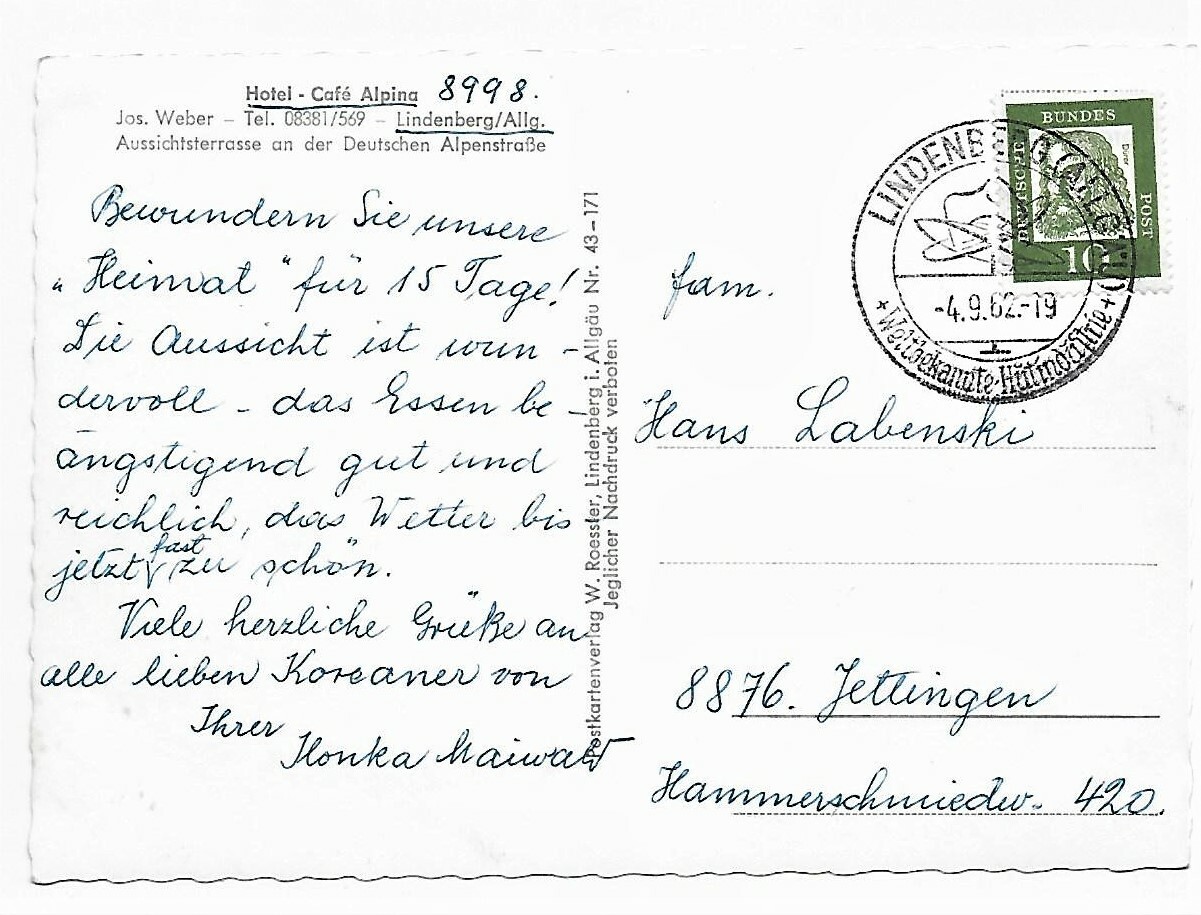 Hotel - Café Alpina 8998.
Jos. Weber – Tel. 08381/569 – Lindenberg/Allg.
Aussichtsterrasse an der Deutschen Alpenstraße
Bewundern Sie unsere
„Heimat“ für 15 Tage!
Die Aussicht ist wun-
dervoll - das Essen be-
ängstigend gut und
reichlich, das Wetter bis
jetzt fast zu schön.
Viele herzliche Grüße an
alle lieben Koreaner von
Ihrer
Ilonka Maiwald
Postkartenverlag W. Roessler, Lindenberg i. Allgäu Nr. 43-171
Jeglicher Nachdruck verboten
LINDENBERG (ALLGÄU)
-4.9.62.-19
+ Weltbekannte Hutindustrie +
DEUTSCHE
BUNDES
POST
Dürer
10
fam.
Hans Labenski
8876. Jettingen
Hammerschmiedw. 420.